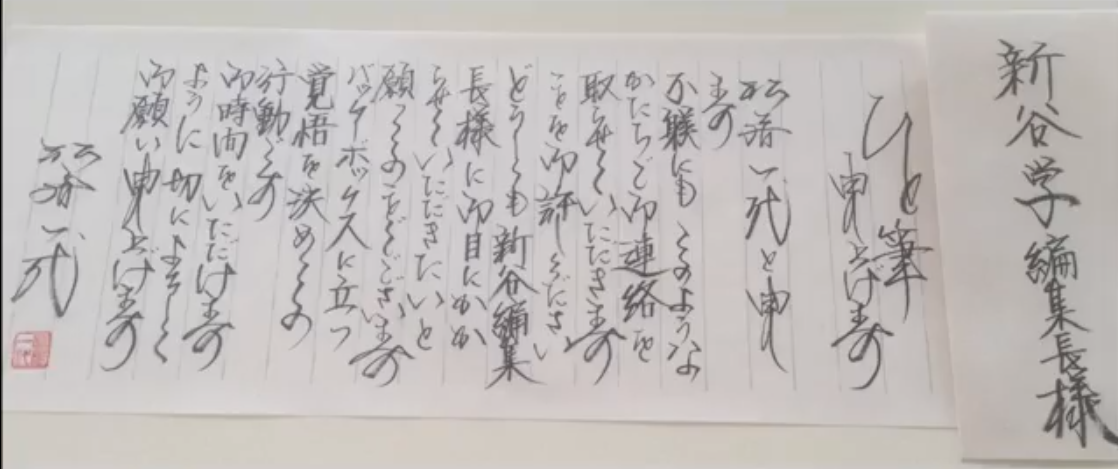 新谷学編集長様
ひと筆
申し上げます
松居一代と申し
ます
不躾にもこのような
かたちで御連絡を
取らせていただきます
ことを御許しください
どうしても新谷編集
長様に御目にかか
らせていただきたいと
願ってのことでございます
バッターボックスに立つ
覚悟を決めての
行動です
御時間をいただけます
ように切によろしく
御願い申し上げます
松居一代
一代